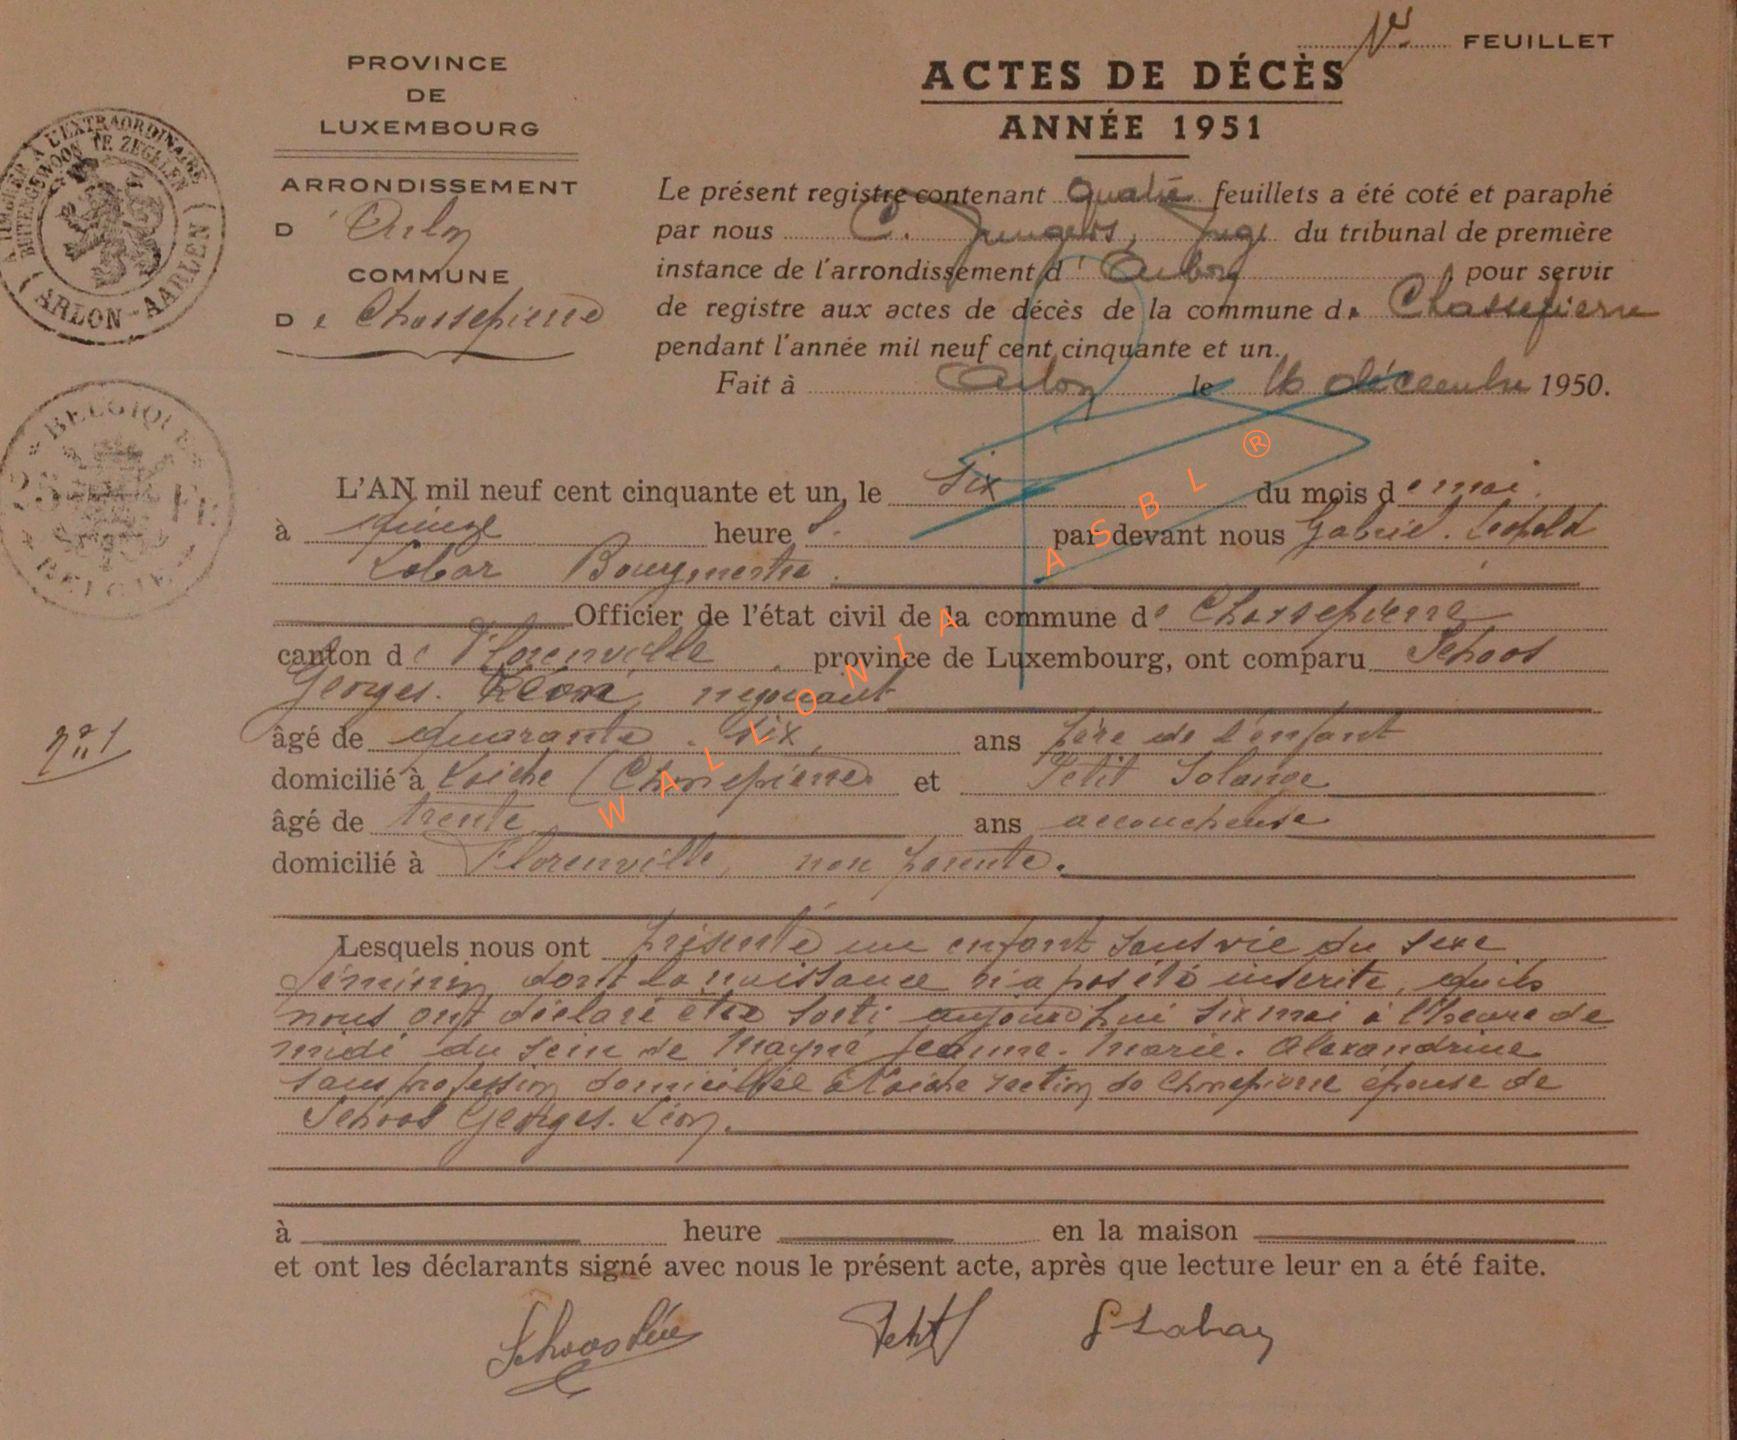 1er FEUILLET
PROVINCE
DE
LUXEMBOURG
ARRONDISSEMENT
D' Arlon
COMMUNE
De Chassepierre
ACTES DE DÉCÈS
ANNÉE 1951
Le présent registre contenant quatre feuillets a été coté et paraphé
par nous C. Juge du tribunal de première
instance de l'arrondissement d'Arlon, pour servir
de registre aux actes de décès de la commune de Chassepierre
pendant l'année mil neuf cent cinquante et un.
Fait à Arlon le 16 décembre 1950.
TIMBRER A L'EXTRAORDINAIRE
BUITENGEWOON TE ZEGELEN
(ARLON - AARLEN)
BELGIQUE
25 Fr.
BELGIE
L'AN mil neuf cent cinquante et un, le six du mois de mai.
à quinze heures. par devant nous Gabriel. Léopold
Labar Bourgmestre.
Officier de l'état civil de la commune de Chassepierre
canton de Florenville, province de Luxembourg, ont comparu Schoos
Georges. Léon, négociant
n° 1
âgé de quarante. six, ans père de l'enfant
domicilié à Laiche (Chassepierre) et Petit Solange
âgé de trente ans accoucheuse
domicilié à Florenville, non parente.
Lesquels nous ont présenté une enfant sans vie du sexe
féminin dont la naissance n'a pas été inscrite, qu'ils
nous ont déclaré être sorti aujourd'hui six mai à l'heure de
midi du sein de Magné Jeanne. Marie. Alexandrine
sans profession domiciliée à Laiche section de Chassepierre épouse de
Schoos Georges. Léon.
à heure en la maison
et ont les déclarants signé avec nous le présent acte, après que lecture leur en a été faite.
Schoos Léon Petit S G Labar
WALLONIA ASBL ®